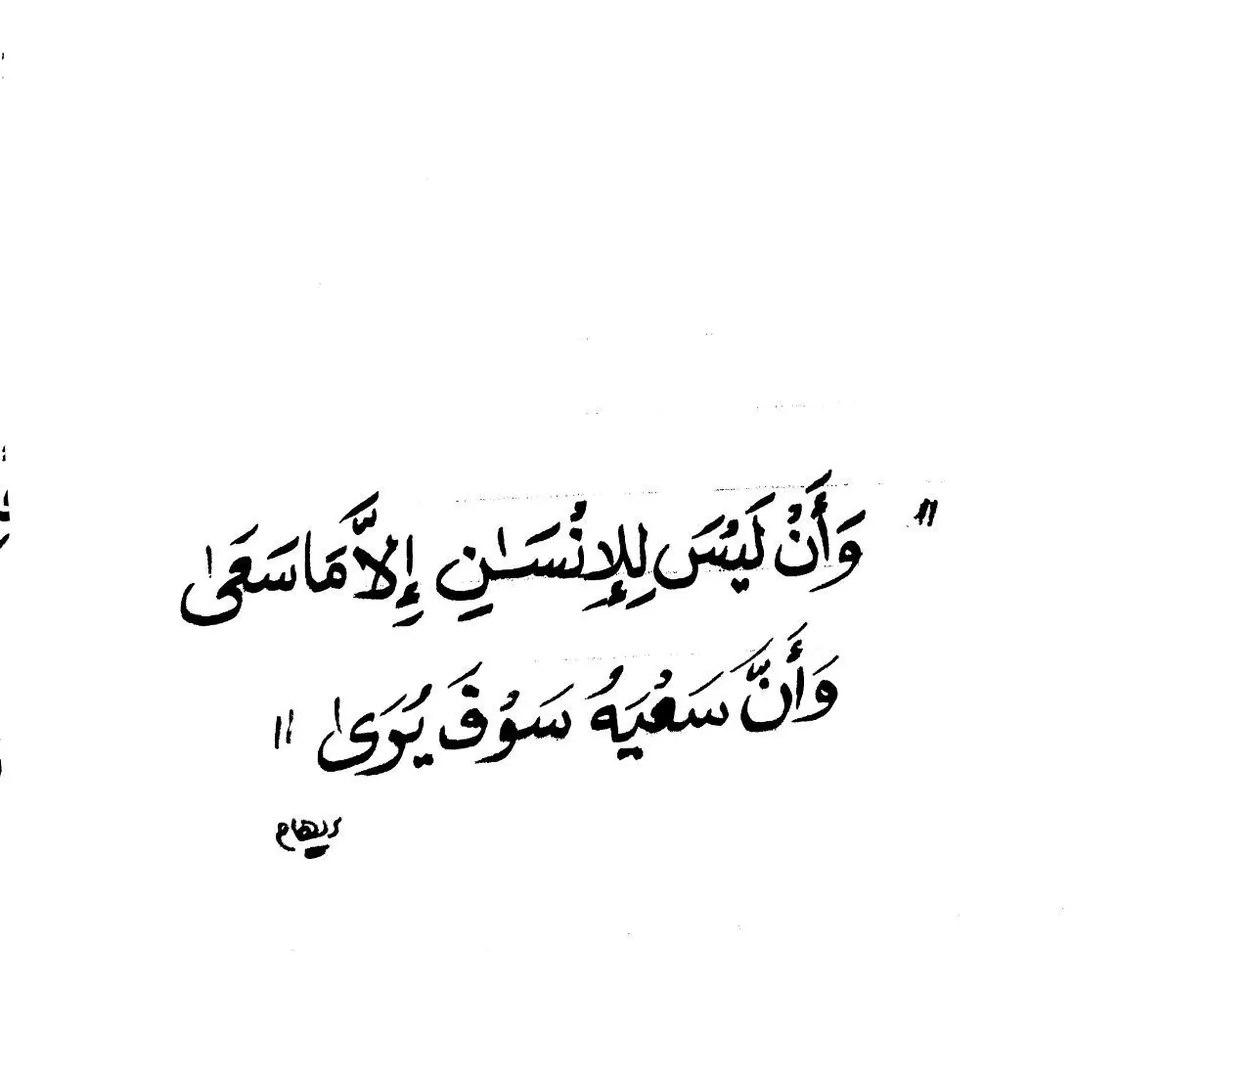 "وَأَنْ لَيْسَ لِلْإِنْسَـٰنِ إِلاَّ مَا سَعَىٰ
وَأَنَّ سَعْيَهُ سَوْفَ يُرَىٰ"
ريهام